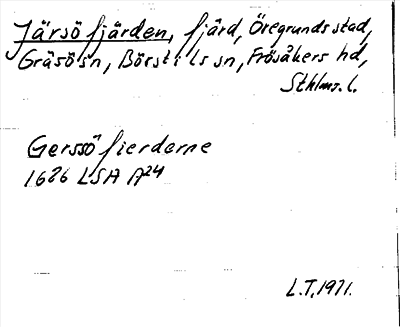 Järsöfjärden, fjärd, Öregrunds stad,
Gräsö sn, Börstils sn, Frösåkers hd,
Sthlms. l.
Gerssöfierderne
1626 LSA A24
L.T, 1971.